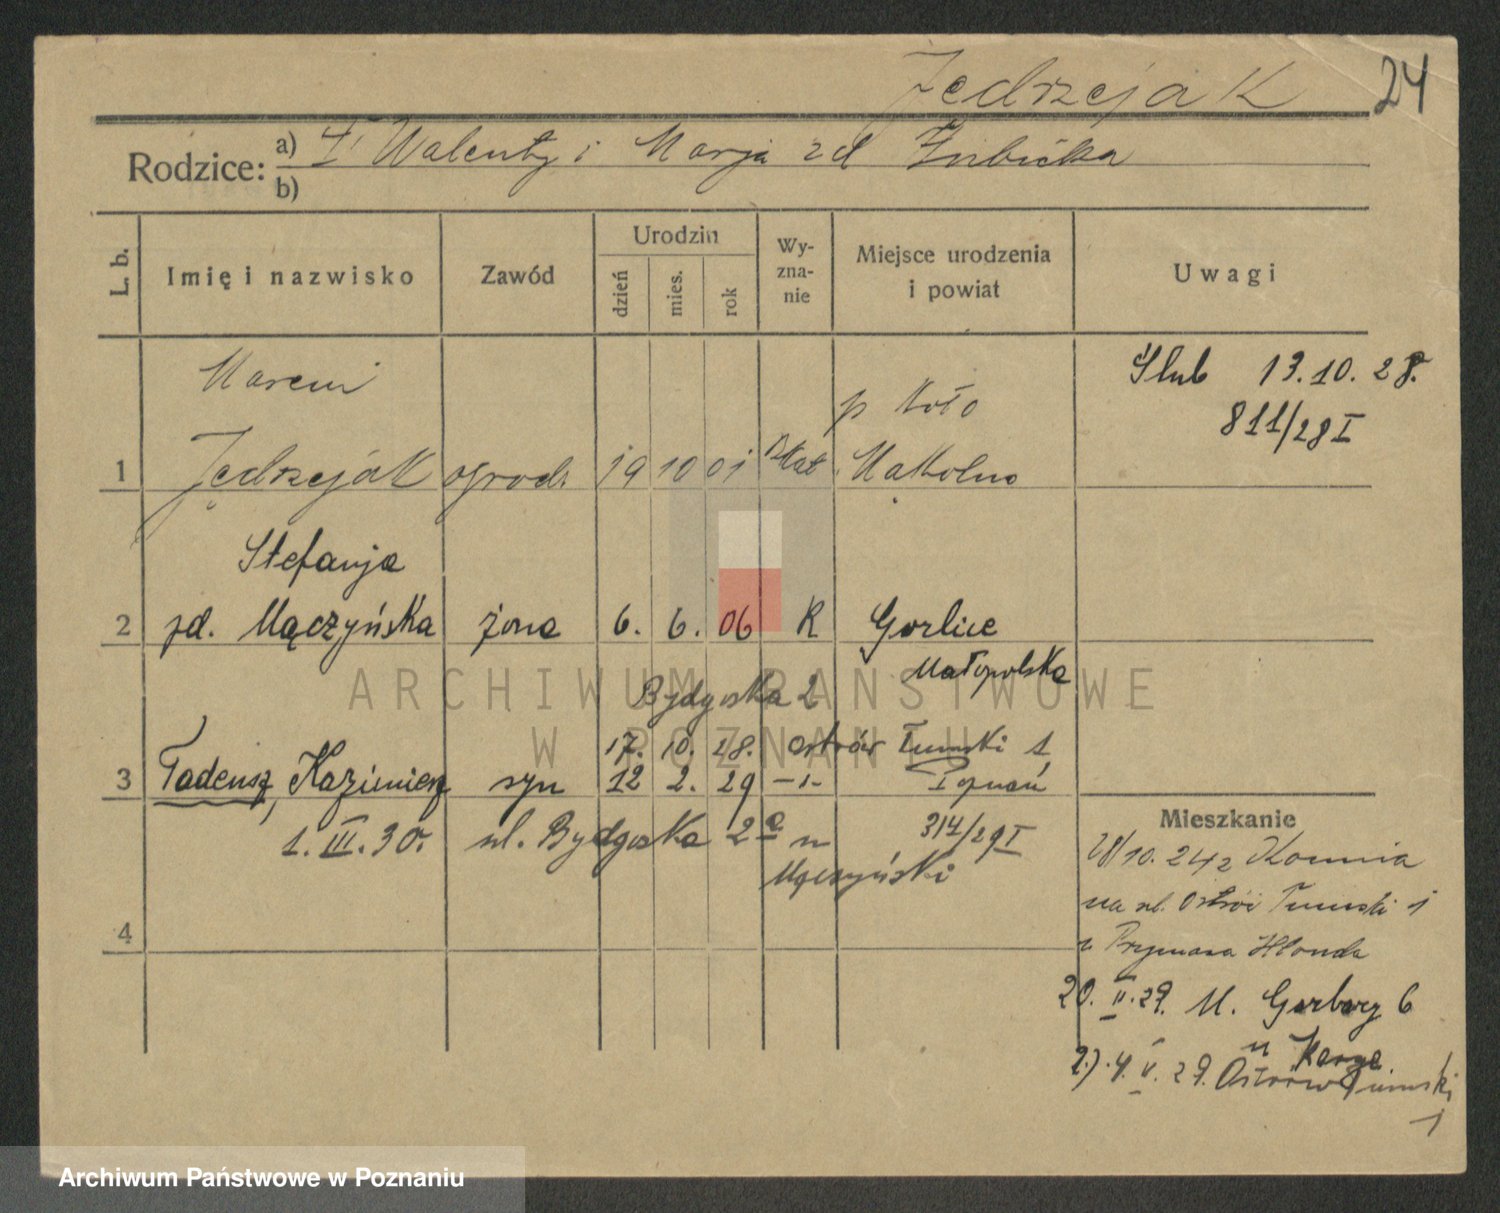 Jędrzejak 24
Rodzice: a) Walenty i Marja zd
b)
L. b. Imię i nazwisko Zawód Urodzin dzień mies. rok Wy-zna-nie Miejsce urodzenia i powiat Uwagi
Marcin p Koło Ślub 13.10.28.
811/28 I
1 Jędrzejak ogrod. 19 10 01 Rkat Mąkolno
Stefanja
2 zd. Mączyńska żona 6. 6. 06 R Gorlice
Małopolska
ARCHIWUM PAŃSTWOWE
Bydgoska 2
W POZNANIU
17. 10. 28. Ostrów Tumski 1
3 Tadeusz, Kazimierz syn 12 2. 29 Poznań
1. III. 30. ul. Bydgoska 2a 314/29 I
Mączyński
4
Mieszkanie
10. 24
na ul. Ostrów Tumski 1
Prymasa Hlonda
20. II. 29. M. Garbary 6
u Karge
2.) 4. V. 29. Ostrów Tumski
1
Archiwum Państwowe w Poznaniu